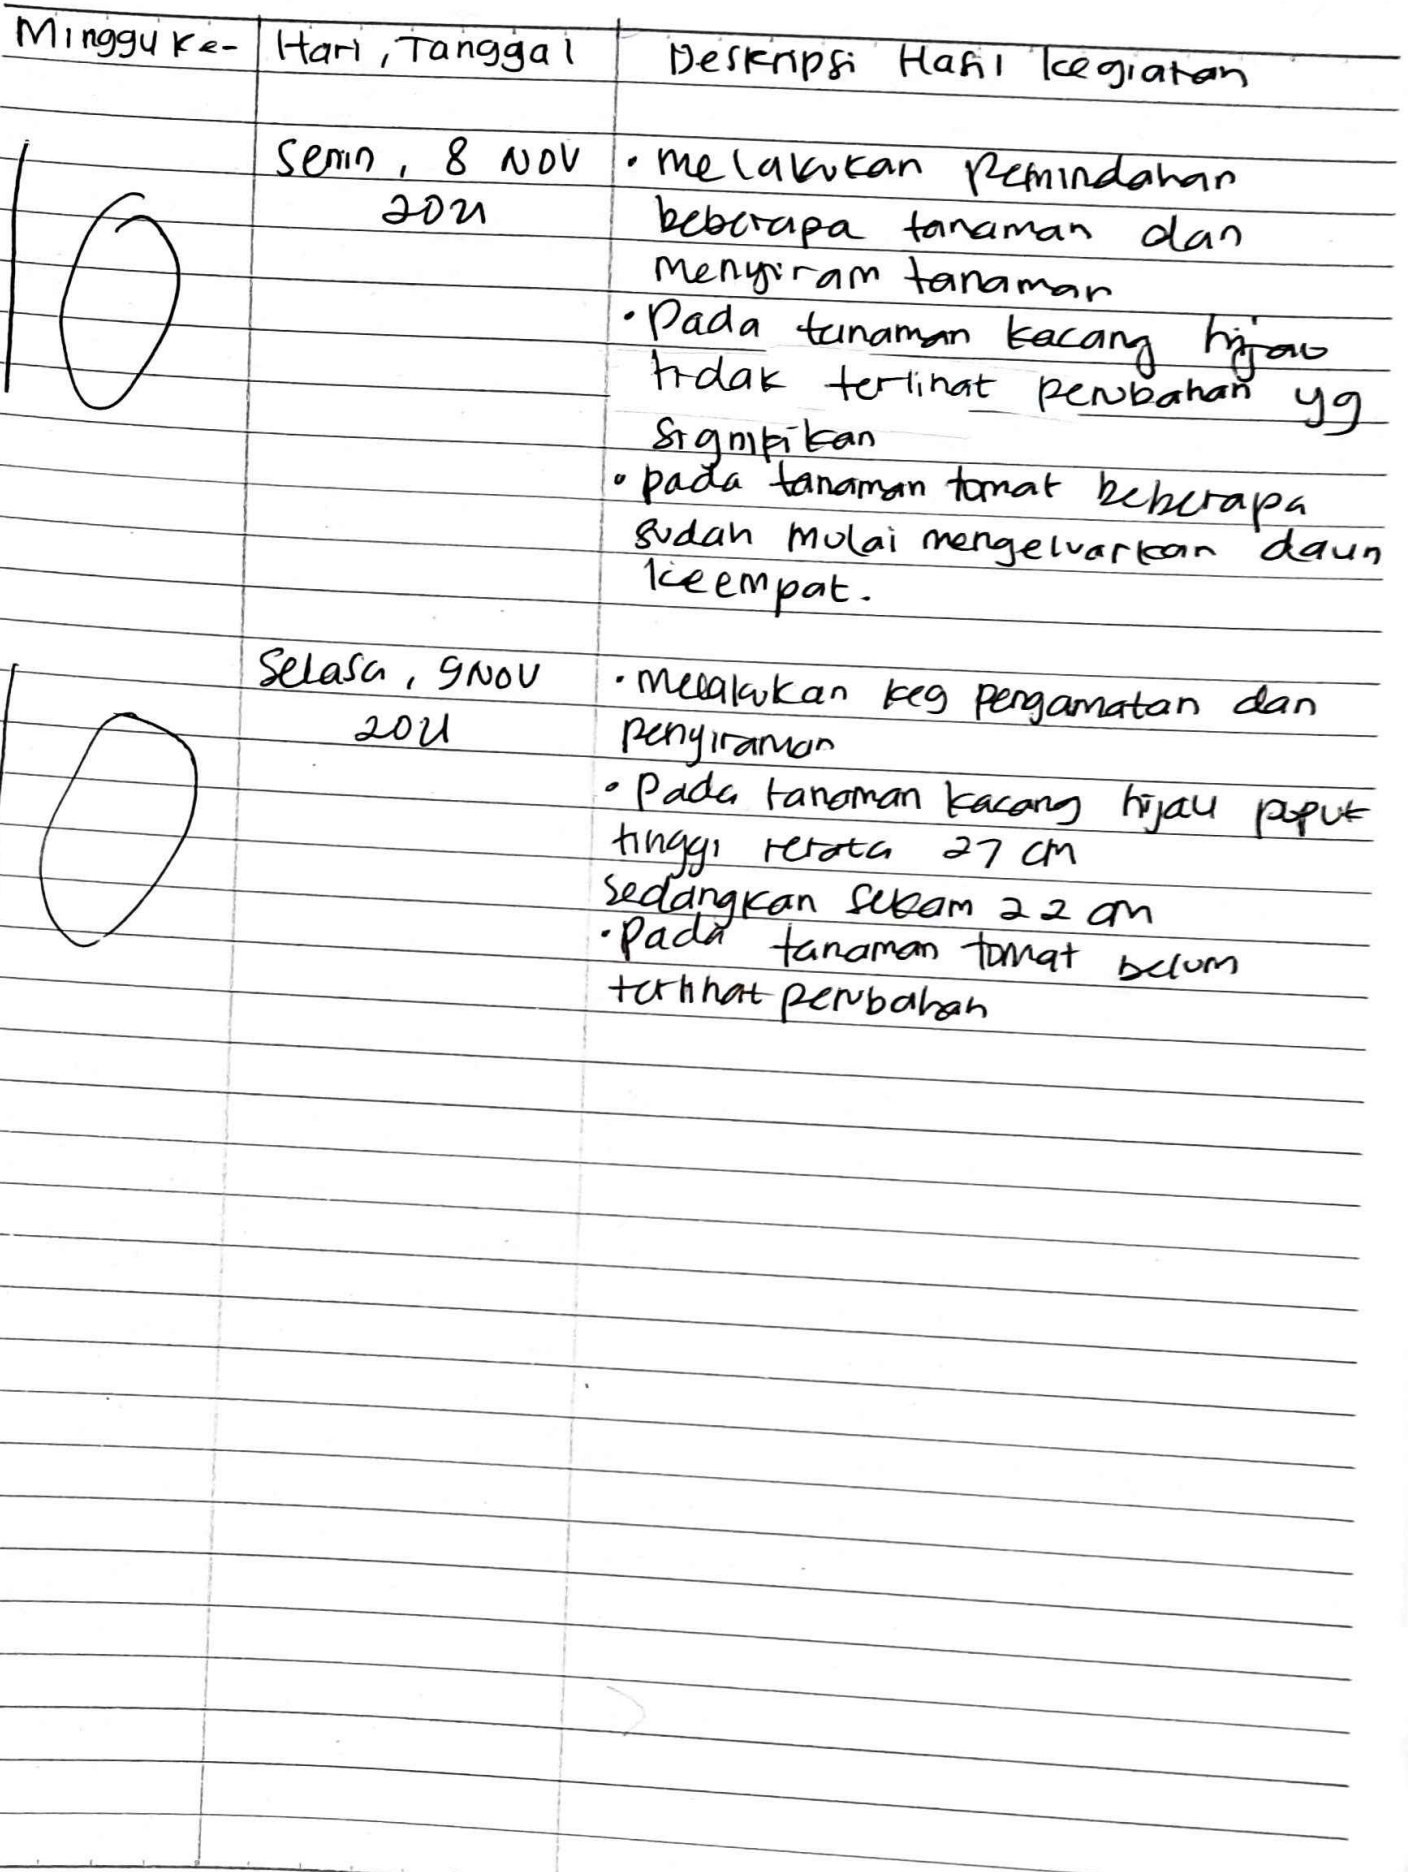 Minggu Ke- Hari, Tanggal Deskripsi Hasil Kegiatan
10 Senin, 8 NOV 2021
• Melakukan Pemindahan
beberapa tanaman dan
Menyiram tanaman
• Pada tanaman kacang hijau
tidak terlihat perubahan yg
signifikan
• pada tanaman tomat beberapa
sudah mulai mengeluarkan daun
keempat.
10 Selasa, 9 NOV 2021
• Melakukan keg pengamatan dan
penyiraman
• Pada tanaman kacang hijau pupuk
tinggi rerata 27 cm
sedangkan sekam 22 cm
• Pada tanaman tomat belum
terlihat perubahan